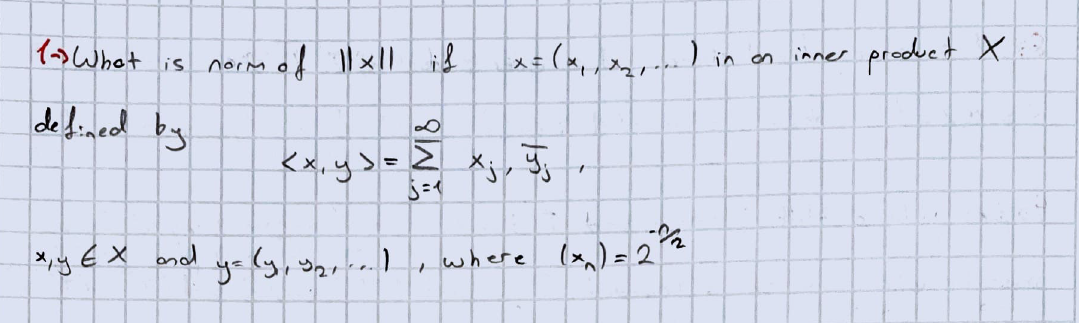 1→ What is norm of ||x|| if x = (x₁, x₂, ...) in an inner product X
defined by
<x, y> = ∞ Σ j=1 xⱼ, ȳⱼ ,
x, y ∈ X and y = (y, y₂, ...) , where (xₙ) = 2^(-n/2)